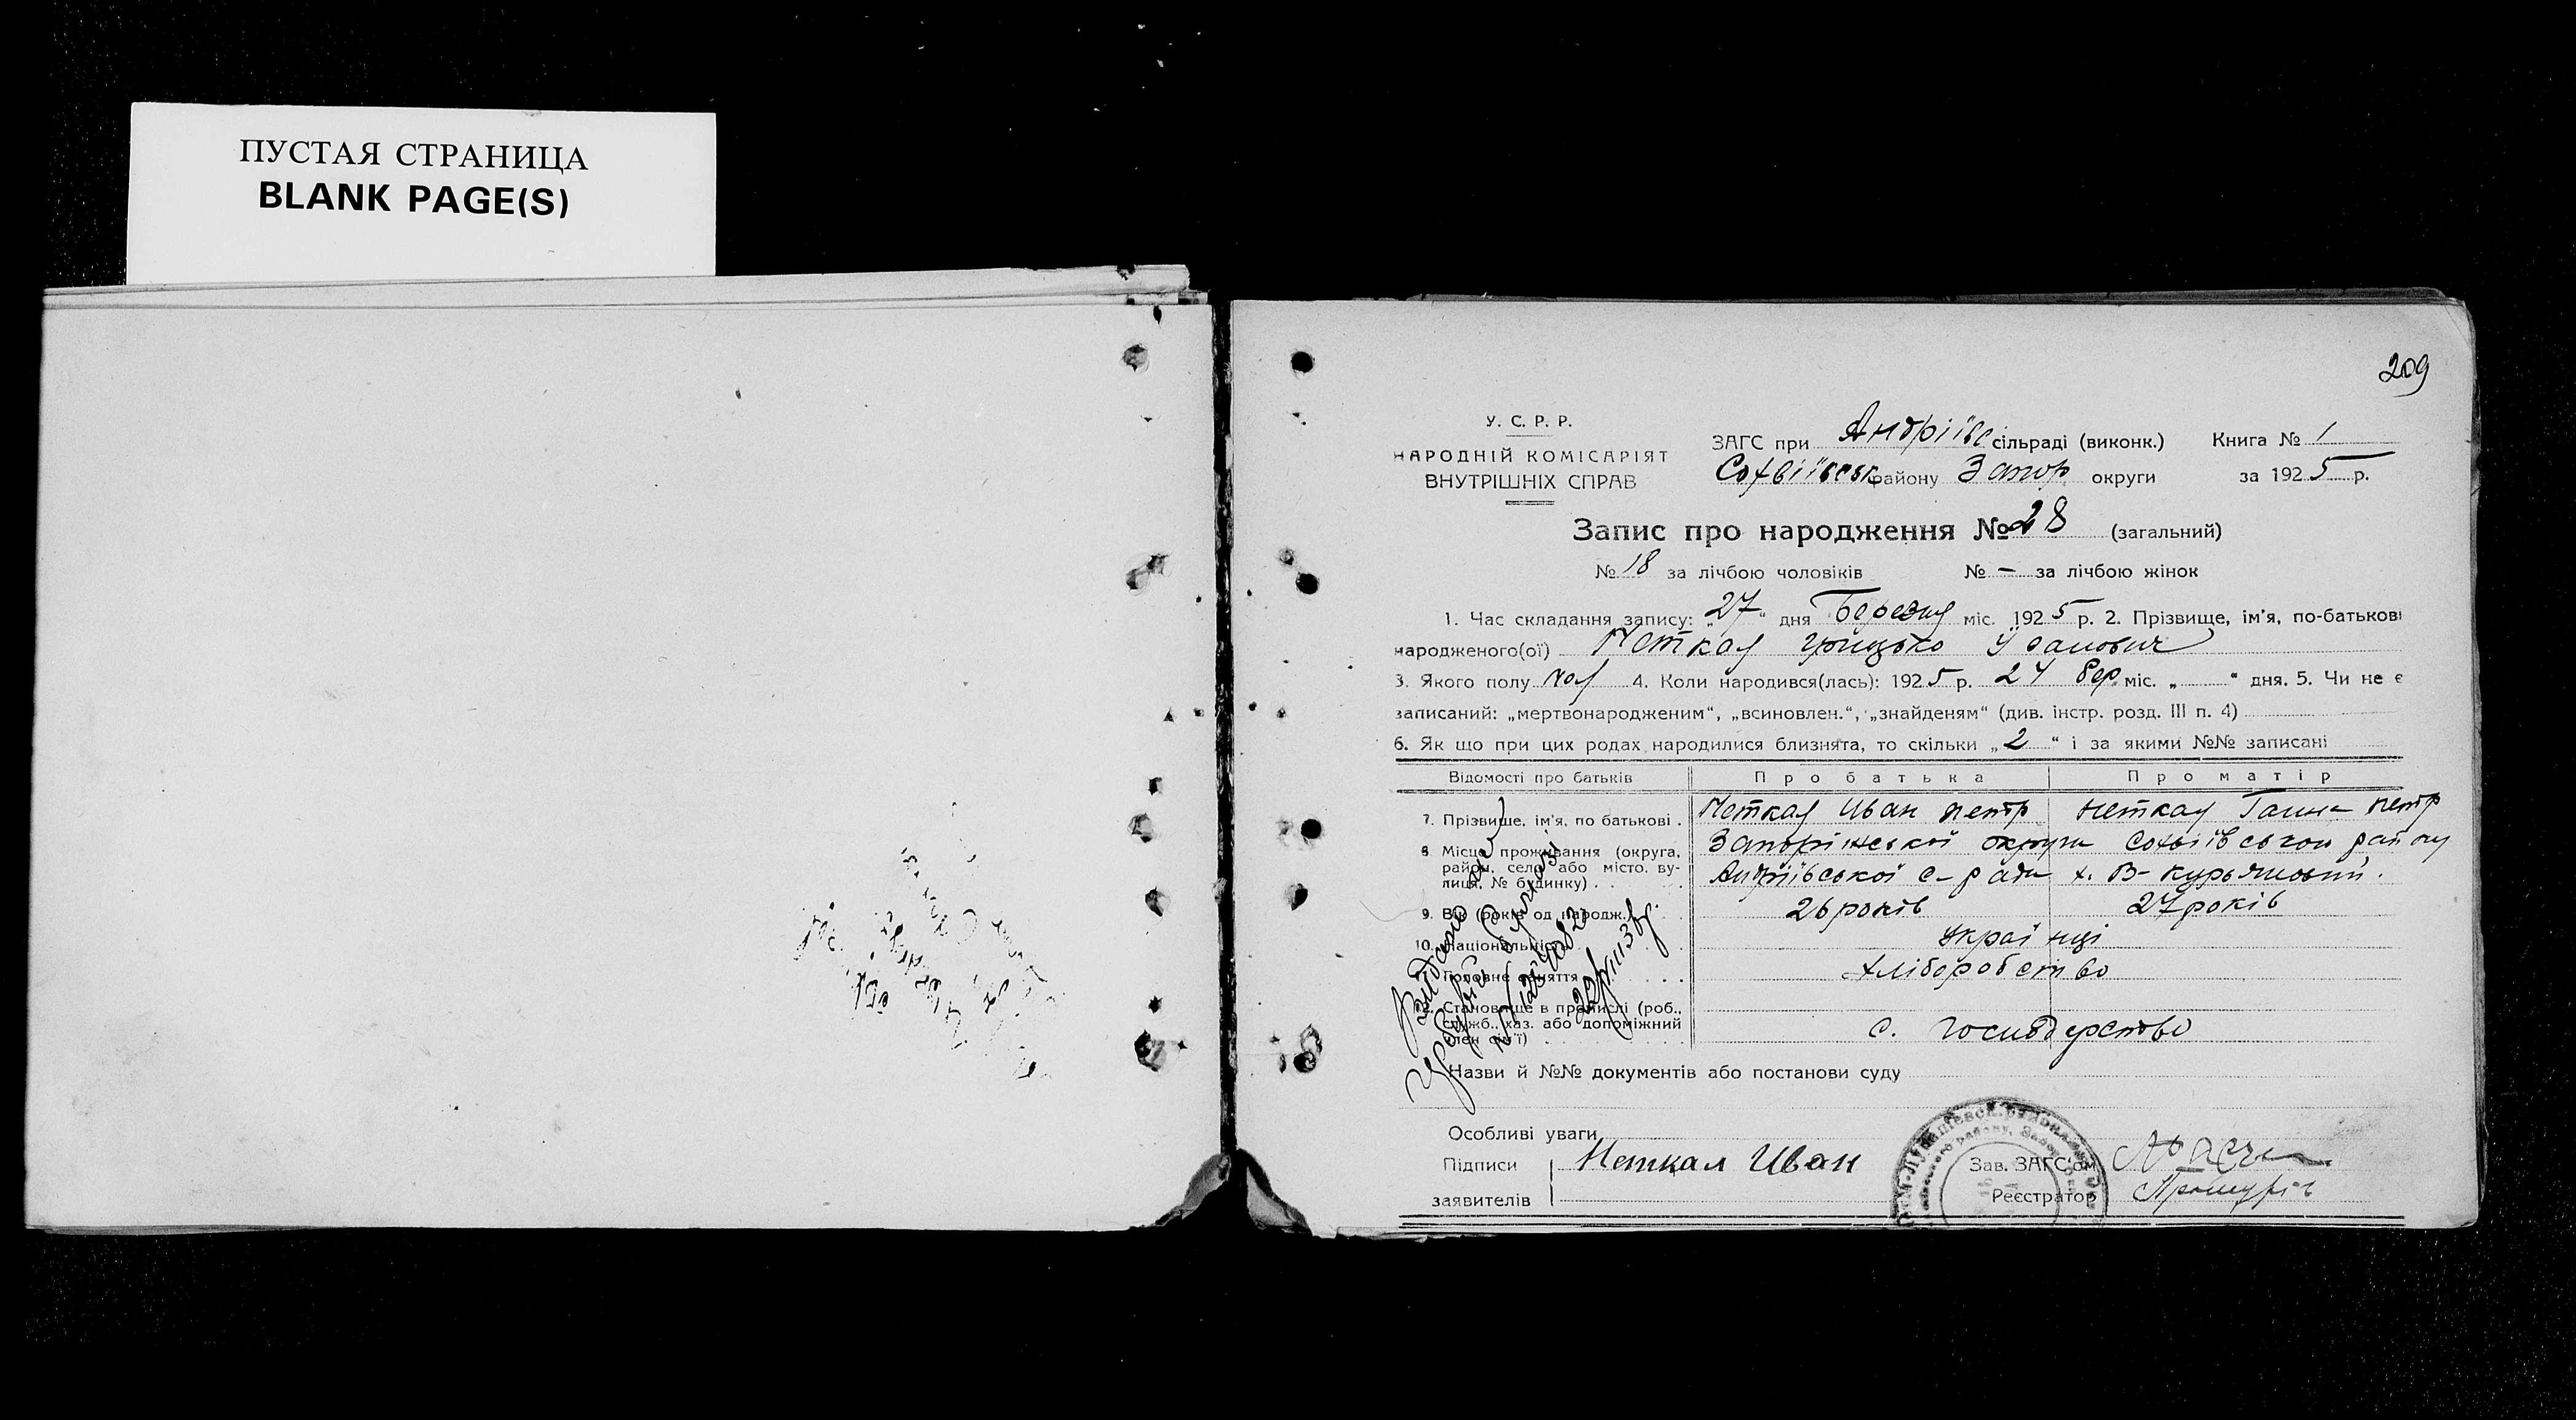 ПУСТАЯ СТРАНИЦА
BLANK PAGE(S)
209
У. С. Р. Р.
НАРОДНІЙ КОМІСАРІЯТ
ВНУТРІШНІХ СПРАВ
ЗАГС при Андріївс сільраді (виконк.) Книга № 1
Софіївськ району Запор округи за 1925 р.
Запис про народження № 28 (загальний)
№ 18 за лічбою чоловіків № — за лічбою жінок
1. Час складання запису: „27“ дня Березня міс. 1925 р. 2. Прізвище, ім'я, по-батькові
народженого(ої) Неткал Грицько Іванович
3. Якого полу чол 4. Коли народився(лась): 1925 р. 24 бер. міс. „ “ дня. 5. Чи не є
записаний: „мертвонародженим“, „всиновлен.“, „знайденям“ (див. інстр. розд. III п. 4)
6. Як що при цих родах народилися близнята, то скільки „2“ і за якими №№ записані
Відомості про батьків Про батька Про матір
7. Прізвище, ім'я, по батькові . Неткал Иван петр Неткал Ганна петр
8. Місце проживання (округа, район, село або місто, вулиця, № будинку) . Запоріжської округи Софіївського району
Андріївської с-ради х. В-Курьяновий.
9. Вік (років од народж.) 26 років 27 років
10. Національність Українці
11. Головне заняття Хліборобство
12. Становище в промислі (роб., служб., хаз. або допоміжний член сім'ї) с. господарство
Назви й №№ документів або постанови суду
Особливі уваги
Підписи Неткал Иван Зав. ЗАГС'ом
заявителів Реєстратор